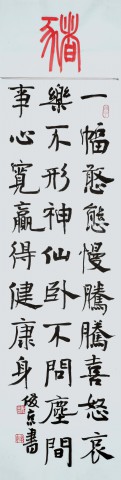 豬
一幅憨態慢騰騰喜怒哀
樂不形神仙卧不問塵間
事心寬贏得健康身
俊京書